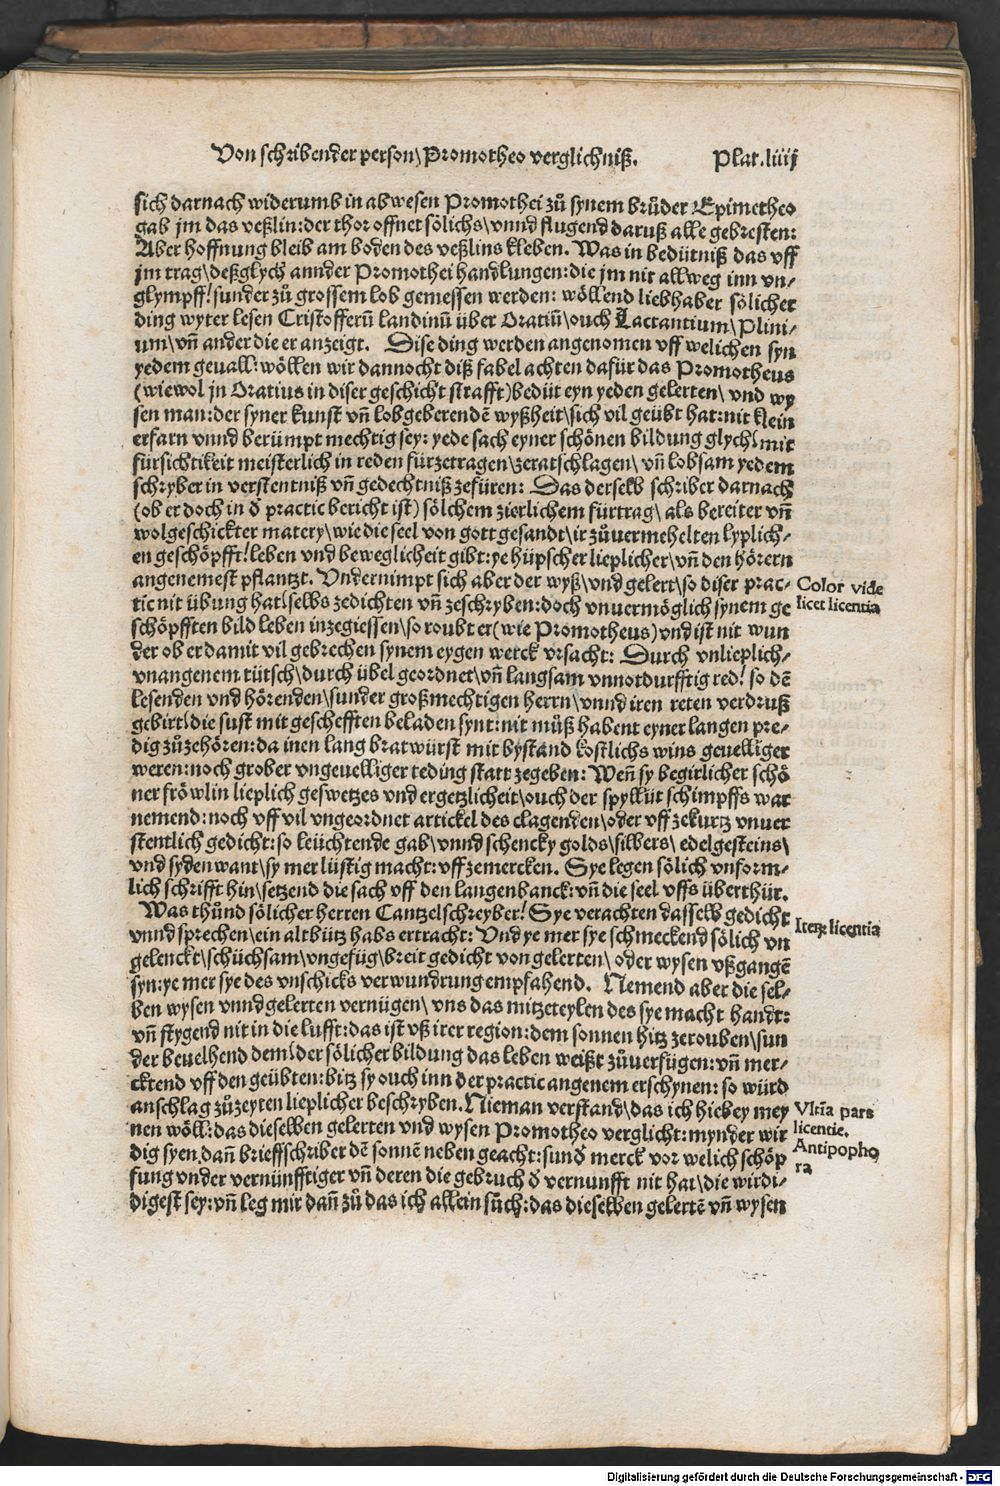 Von schribender person\ Promotheo verglichniß.
Plat.liiij
sich darnach widerumb in abwesen Promothei zů synem brůder Epimetheo
gab jm das veßlin: der thor offnet sölichs\ vnnd flugend daruß alle gebresten:
Aber hoffnung bleib am boden des veßlins kleben. Was in bedütniß das vff
jm trag\ deßglych annder Promothei handlungen: die jm nit allweg inn vn-
glympff! sunder zů grossem lob gemessen werden: wöllend liebhaber sölicher
ding wyter lesen Cristofferū landinū über Oratiū\ ouch Lactantium\ Plini-
um\ vn̄ ander die er anzeigt. Dise ding werden angenomen vff welichen syn
yedem geuall: wöllen wir dannocht diß fabel achten dafür das Promotheus
(wiewol jn Oratius in diser geschicht strafft) bedüt eyn yeden gelerten\ vnd wy
sen man: der syner kunst vn̄ lobgeberendē wyßheit\ sich vil geübt hat: nit klein
erfarn vnnd berümpt mechtig sey: yede sach eyner schönen bildung glych! mit
fürsichtikeit meisterlich in reden fürzetragen\ zeratschlagen\ vn̄ lobsam yedem
schryber in verstentniß vn̄ gedechtniß zefüren: Das derselb schriber darnach
(ob er doch in d̄ practic bericht ist) sölchem zierlichem fürtrag\ als bereiter vn̄
wolgeschickter matery\ wie die seel von gott gesandt\ ir zůuermehelten lyplich-
en geschöpfft! leben vnd beweglicheit gibt: ye hüpscher lieplicher\ vn̄ den hörern
angenemest pflantzt. Vndernimpt sich aber der wyß\ vnd gelert\ so diser prac-
tic nit übung hat! selbs zedichten vn̄ zeschryben: doch vnuermöglich synem ge
schöpfften bild leben inzegiessen\ so roubt er (wie Promotheus) vnd ist nit wun
der ob er damit vil gebrechen synem eygen werck vrsacht: Durch vnlieplich-
vnangenem tütsch\ durch übel geordnet\ vn̄ langsam vnnotdurfftig red! so dē
lesenden vnd hörenden\ sunder großmechtigen herrn\ vnnd iren reten verdruß
gebirt! die sust mit geschefften beladen synt: nit můß habent eyner langen pre-
dig zůzehören: da inen lang bratwürst mit bystand kostlichs wins geuelliger
weren: noch grober vngeuelliger teding statt zegeben: Wen̄ sy begirlicher schö
ner fröwlin lieplich geswetzes vnd ergetzlicheit\ ouch der spyllüt schimpffs war
nemend: noch vff vil vngeordnet artickel des clagenden\ oder vff zekurtz vnuer
stentlich gedicht: so leüchtende gab\ vnnd schencky golds\ silbers\ edelgesteins\
vnd syden want\ sy mer lüstig macht: vffzemercken. Sye legen sölich vnform-
lich schrifft hin\ setzend die sach vff den langenbanck: vn̄ die seel vffs überthür.
Was thůnd sölicher herren Cantzelschreyber! Sye verachten dasselb gedicht
vnnd sprechen\ ein altbütz habs ertracht: Vnd ye mer sye schmeckend sölich vn
gelenckt\ schüchsam\ vngefüg\ breit gedicht von gelerten\ oder wysen vßgangē
syn: ye mer sye des vnschicks verwundrung empfahend. Nemend aber die sel-
ben wysen vnnd gelerten vernügen\ vns das mitzeteylen des sye macht handt:
vn̄ flygend nit in die lufft: das ist vß irer region: dem sonnen hitz zerouben\ sun
der beuelhend dem! der sölicher bildung das leben weißt zůuerfügen: vn̄ mer-
cktend vff den geübten: bitz sy ouch inn der practic angenem erschynen: so würd
anschlag zůzeyten lieplicher beschryben. Nieman verstand\ das ich hiebey mey
nen wöll: das dieselben gelerten vnd wysen Promotheo verglicht: mynder wir
dig syen dan̄ brieffschriber dē sonnē neben geacht: sund̄ merck vor welich schöp
fung vnder vernünfftiger vn̄ deren die gebruch d̄ vernunfft nit hat\ die wirdi-
digest sey: vn̄ leg mir dan̄ zů das ich allein sůch: das dieselben gelertē vn̄ wysen
Color vide
licet licentia
Iteꝛ licentia
Vltīa pars
licentie.
Antipopho
ra
Digitalisierung gefördert durch die Deutsche Forschungsgemeinschaft - DFG